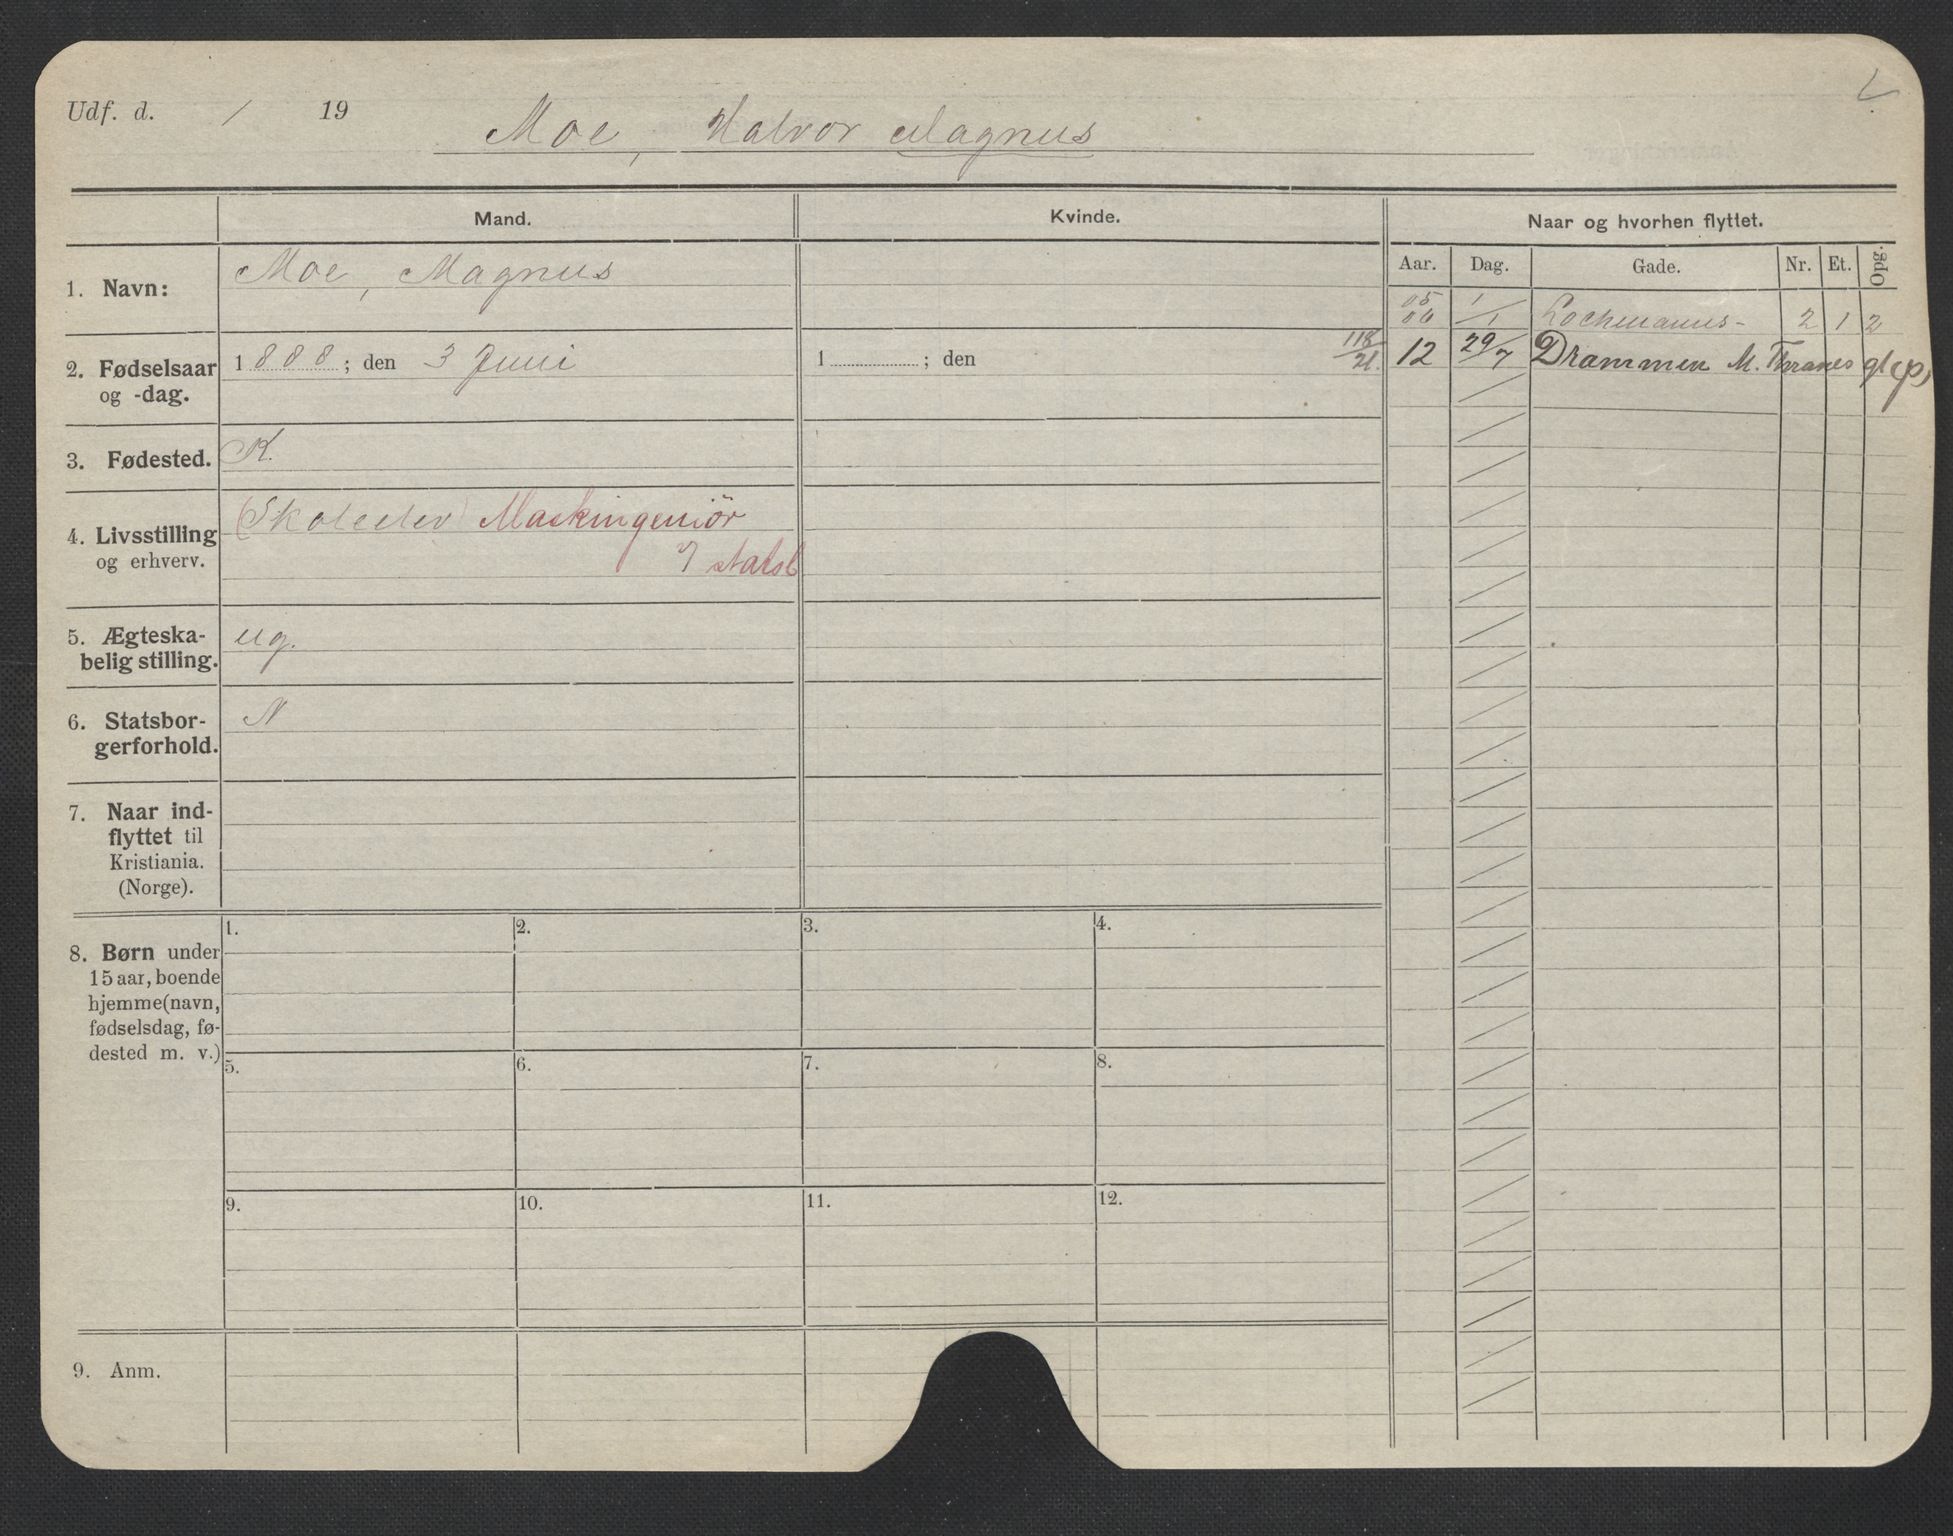 Udf. d. / 19
Moe, Halvor Magnus
Mand.
Kvinde.
Naar og hvorhen flyttet.
Aar. Dag. Gade. Nr. Et. Opg.
1. Navn:
Moe, Magnus
05
06 1/1 Lochmanns- 2 1 2
2. Fødselsaar
og -dag.
1888; den 3 Juni
1 ; den
118/21. 12 29/7 Drammen M. Thranes gt
3. Fødested.
K.
4. Livsstilling
og erhverv.
(Skoleelev) Maskingeniör
v/ statsb
5. Ægteska-
belig stilling.
ug.
6. Statsbor-
gerforhold.
N
7. Naar ind-
flyttet til
Kristiania.
(Norge).
8. Børn under
15 aar, boende
hjemme (navn,
fødselsdag, fø-
dested m. v.)
1. 2. 3. 4.
5. 6. 7. 8.
9. 10. 11. 12.
9. Anm.